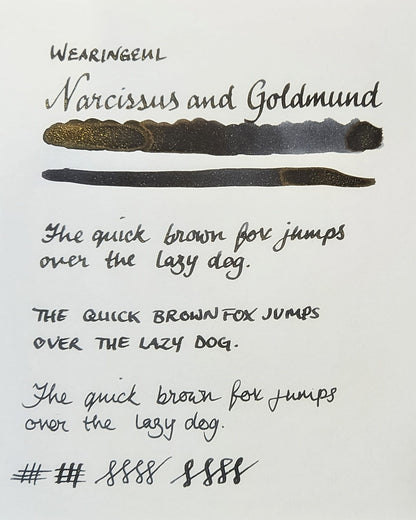 WEARINGEUL
Narcissus and Goldmund
The quick brown fox jumps
over the lazy dog.
THE QUICK BROWN FOX JUMPS
OVER THE LAZY DOG.
The quick brown fox jumps
over the lazy dog.